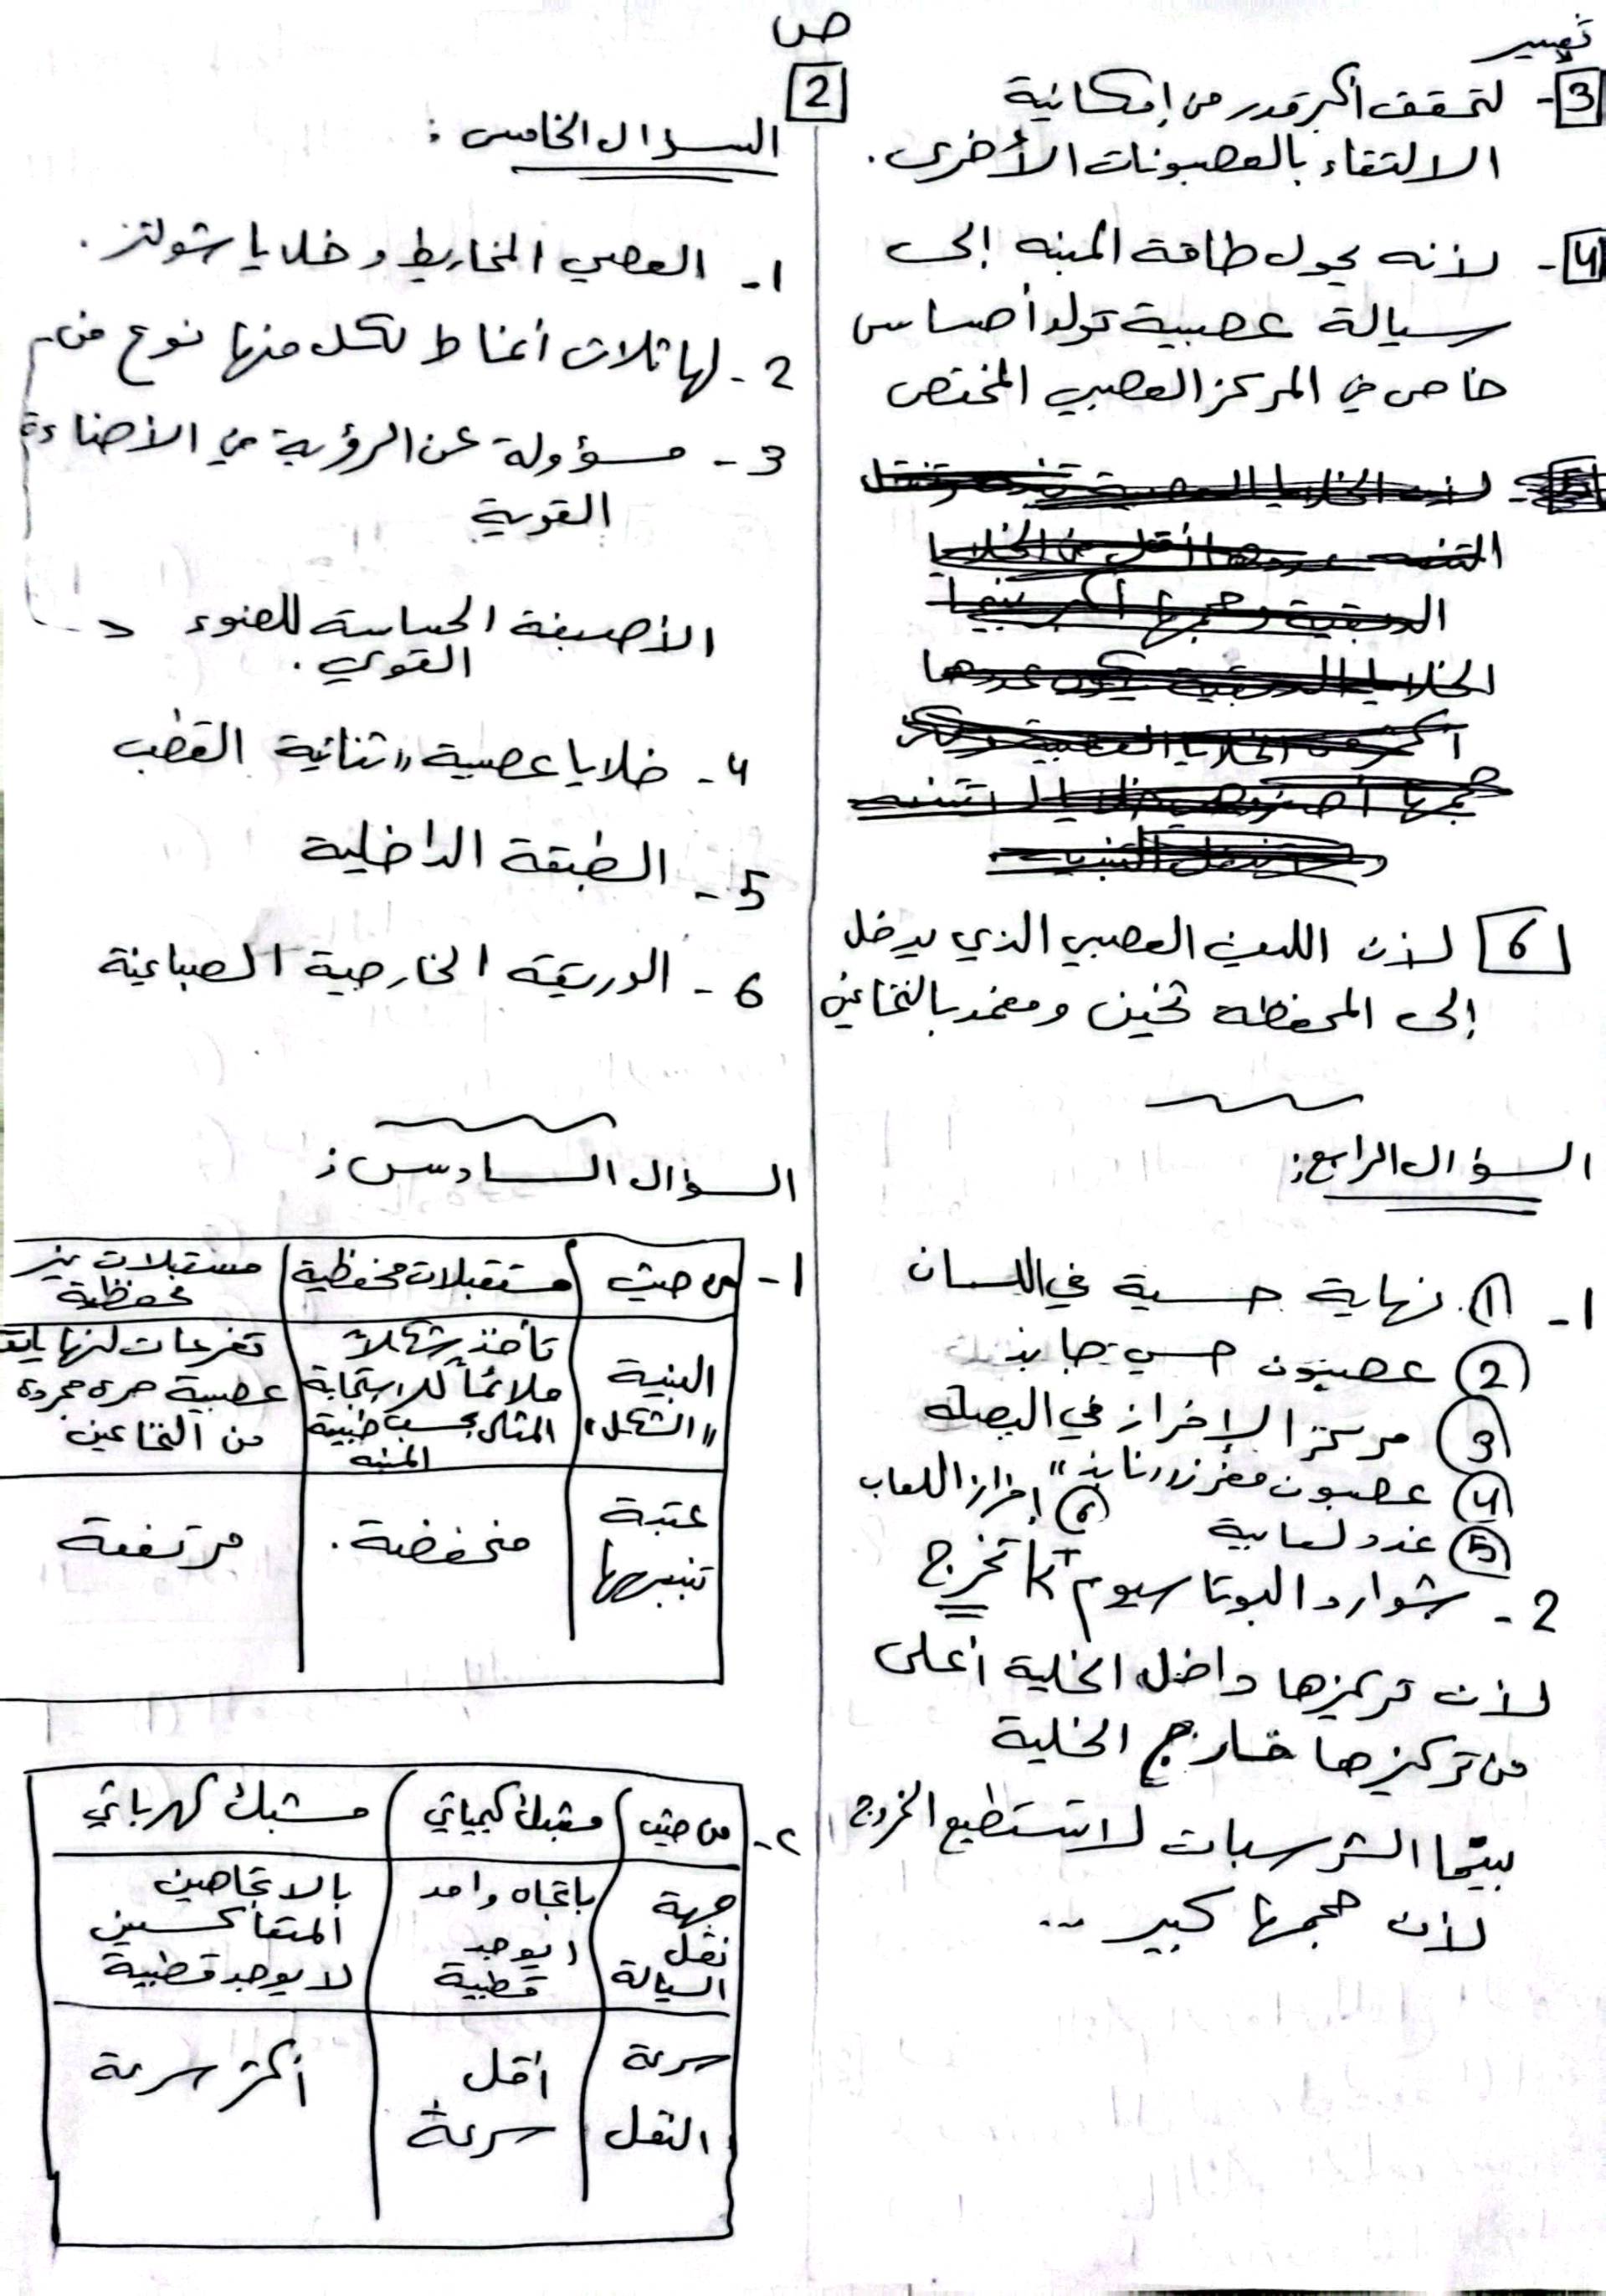 ص
2
تفسير
3- لتحقق أكبر قدر من إمكانية
الالتقاء بالعصبونات الأخرى.
4- لأنه يحول طاقة المنبه إلى
سيالة عصبية تولد أحساس
خاص في المركز العصبي المختص
6 لأن الليف العصبي الذي يدخل
إلى المحفظة ثخين ومغمد بالنخاعين
السؤال الرابع:
1- ① نهاية حسية في اللسان
② عصبون حسي جابذ
③ مركز الإفراز في البصلة
④ عصبون مفرز "نابذ"
⑤ غدد لعابية ⑥ إفراز اللعاب
2- شوارد البوتاسيوم K+ تخرج
لأن تركيزها داخل الخلية أعلى
من تركيزها خارج الخلية
بينما الشرسبات لا تستطيع الخروج
لأن حجمها كبير ..
السؤال الخامس:
1- العصي المخاريط وخلايا شولتز.
2- لها ثلاث أنماط لكل منها نوع من
3- مسؤولة عن الرؤية في الأضاءة
القوية
الأصبغة الحساسة للضوء
القوي.
4- خلايا عصبية ثنائية القطب
5- الطبقة الداخلية
6- الوريقة الخارجية الصباغية
السؤال السادس:
1- من حيث مستقبلات محفظية مستقبلات غير
محفظية
البنية تأخذ شكلاً تفرعات لنهايات
"الشكل" ملائماً للاستجابة عصبية حرة مجردة
المثلى بحسب طبيعة من النخاعين
المنبه
عتبة منخفضة. مرتفعة
تنبيهها
٢- من حيث مشبك كيميائي مشبك كهربائي
جهة باتجاه واحد بالاتجاهين
نقل يوجد المتعاكسين
السيالة قطبية لا يوجد قطبية
سرعة أقل أكثر سرعة
النقل سرعة